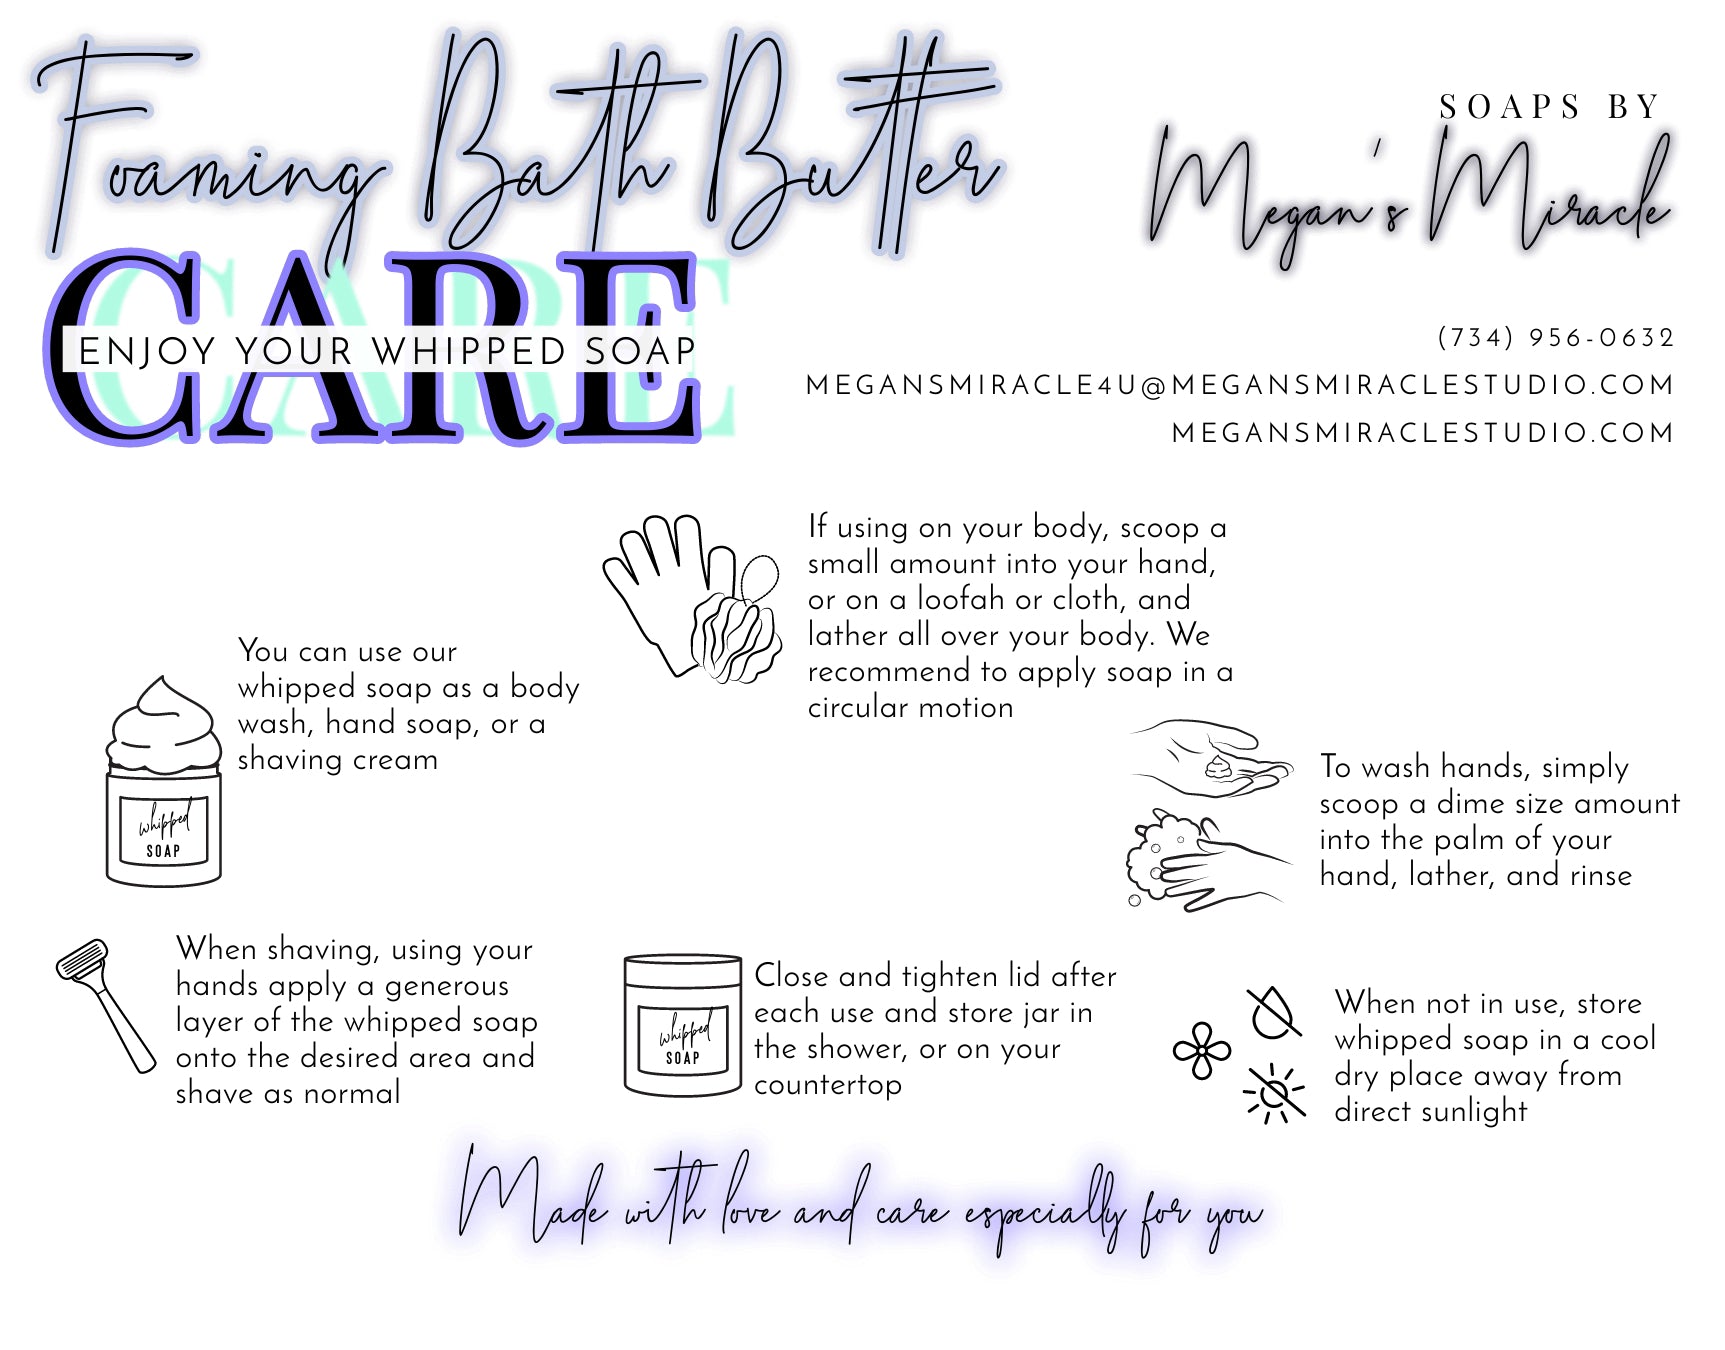 Foaming Bath Butter
CARE
ENJOY YOUR WHIPPED SOAP
SOAPS BY
Megan's Miracle
(734) 956-0632
MEGANSMIRACLE4U@MEGANSMIRACLESTUDIO.COM
MEGANSMIRACLESTUDIO.COM
You can use our
whipped soap as a body
wash, hand soap, or a
shaving cream
whipped
SOAP
If using on your body, scoop a
small amount into your hand,
or on a loofah or cloth, and
lather all over your body. We
recommend to apply soap in a
circular motion
To wash hands, simply
scoop a dime size amount
into the palm of your
hand, lather, and rinse
When shaving, using your
hands apply a generous
layer of the whipped soap
onto the desired area and
shave as normal
whipped
SOAP
Close and tighten lid after
each use and store jar in
the shower, or on your
countertop
When not in use, store
whipped soap in a cool
dry place away from
direct sunlight
Made with love and care especially for you